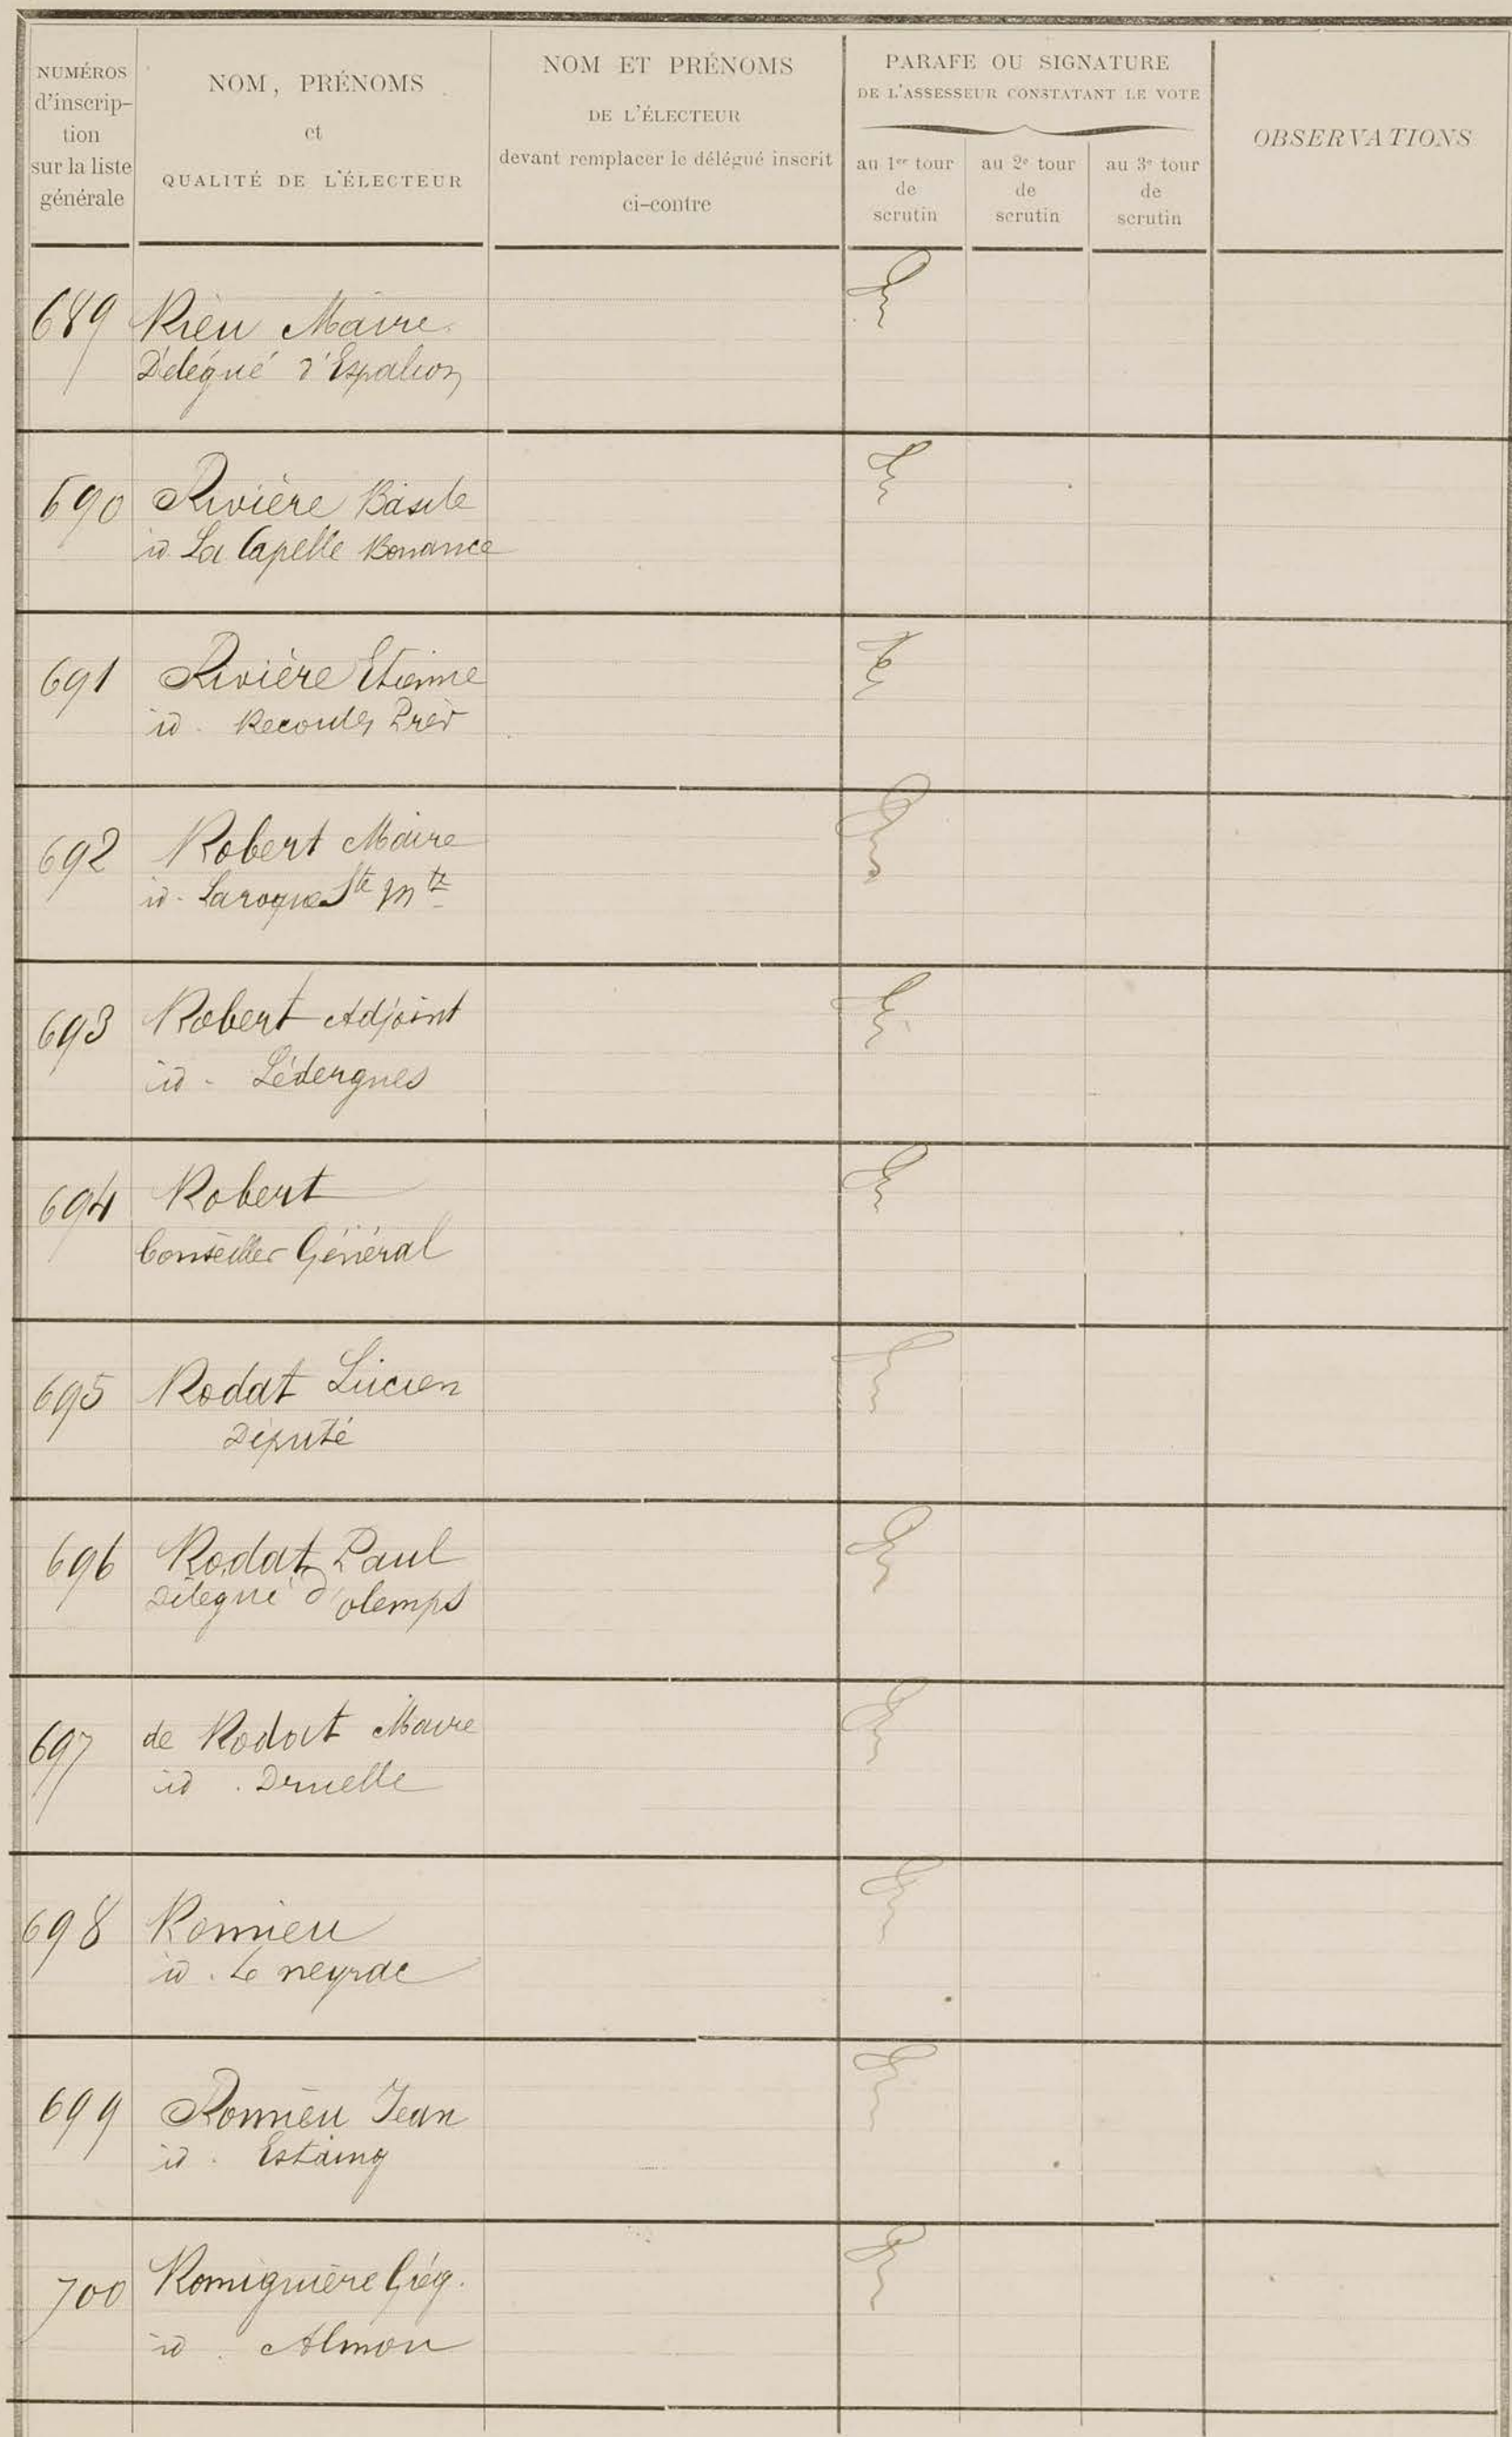 NUMÉROS
d'inscrip-
tion
sur la liste
générale
NOM, PRÉNOMS
et
QUALITÉ DE L'ÉLECTEUR
NOM ET PRÉNOMS
DE L'ÉLECTEUR
devant remplacer le délégué inscrit
ci-contre
PARAFE OU SIGNATURE
DE L'ASSESSEUR CONSTATANT LE VOTE
au 1er tour
de
scrutin
au 2e tour
de
scrutin
au 3e tour
de
scrutin
OBSERVATIONS
689 Rieu Maire
Délégué d'Espalion
690 Rivière Basile
id. La Capelle Bonance
691 Rivière Etienne
id. Recoules Prév
692 Robert Maire
id. Laroque Ste Mte
693 Robert Adjoint
id. Lédergues
694 Robert
Conseiller Général
695 Rodat Lucien
Député
696 Rodat Paul
Délégué d'olemps
697 de Rodat Maire
id. Druelle
698 Romieu
id. Le neyrac
699 Romieu Jean
id. Estaing
700 Romiguière Grég.
id. Almon